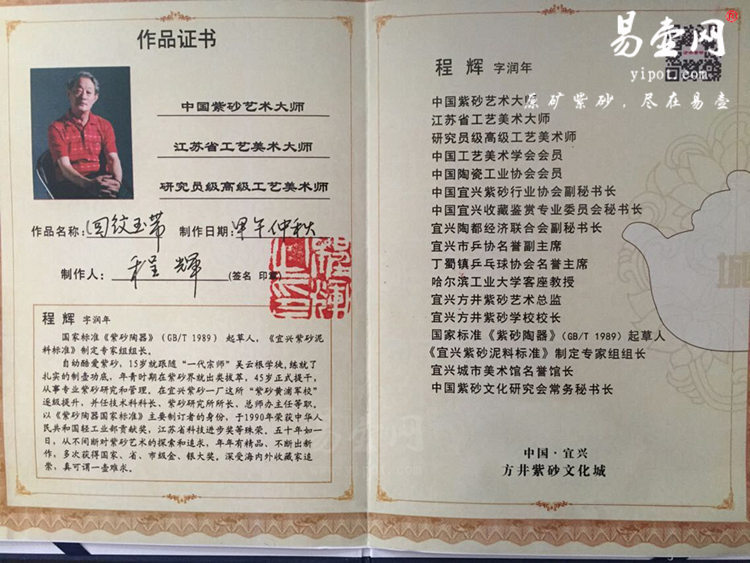 作品证书
中国紫砂艺术大师
江苏省工艺美术大师
研究员级高级工艺美术师
作品名称:回纹玉带 制作日期:甲午仲秋
制作人:程辉(签名 印章)
程辉 字润年
国家标准《紫砂陶器》(GB/T 1989) 起草人,《宜兴紫砂泥
料标准》制定专家组组长。
自幼酷爱紫砂,15岁就跟随“一代宗师”吴云根学徒,练就了
扎实的制壶功底,年青时期在紫砂界就出类拔萃,45岁正式提干,
从事专业紫砂研究和管理。在宜兴紫砂一厂这所“紫砂黄浦军校”
逐级提升,并任技术科科长、紫砂研究所所长、总师办主任等职,
以《紫砂陶器国家标准》主要制订者的身份,于1990年荣获中华人
民共和国轻工业部贡献奖,江苏省科技进步奖等殊荣。五十年如一
日,从不间断对紫砂艺术的探索和追求,年年有精品、不断出新
作,多次获得国家、省、市级金、银大奖。深受海内外收藏家追
崇,真可谓一壶难求。
易壶网
yipot.com
原矿紫砂,尽在易壶
程辉 字润年
中国紫砂艺术大师
江苏省工艺美术大师
研究员级高级工艺美术师
中国工艺美术学会会员
中国陶瓷工业协会会员
中国宜兴紫砂行业协会副秘书长
中国宜兴收藏鉴赏专业委员会秘书长
宜兴陶都经济联合会副秘书长
宜兴市乒协名誉副主席
丁蜀镇乒乓球协会名誉主席
哈尔滨工业大学客座教授
宜兴方井紫砂艺术总监
宜兴方井紫砂学校校长
国家标准《紫砂陶器》(GB/T 1989) 起草人
《宜兴紫砂泥料标准》制定专家组组长
宜兴城市美术馆名誉馆长
中国紫砂文化研究会常务秘书长
城
中国·宜兴
方井紫砂文化城
易壶网